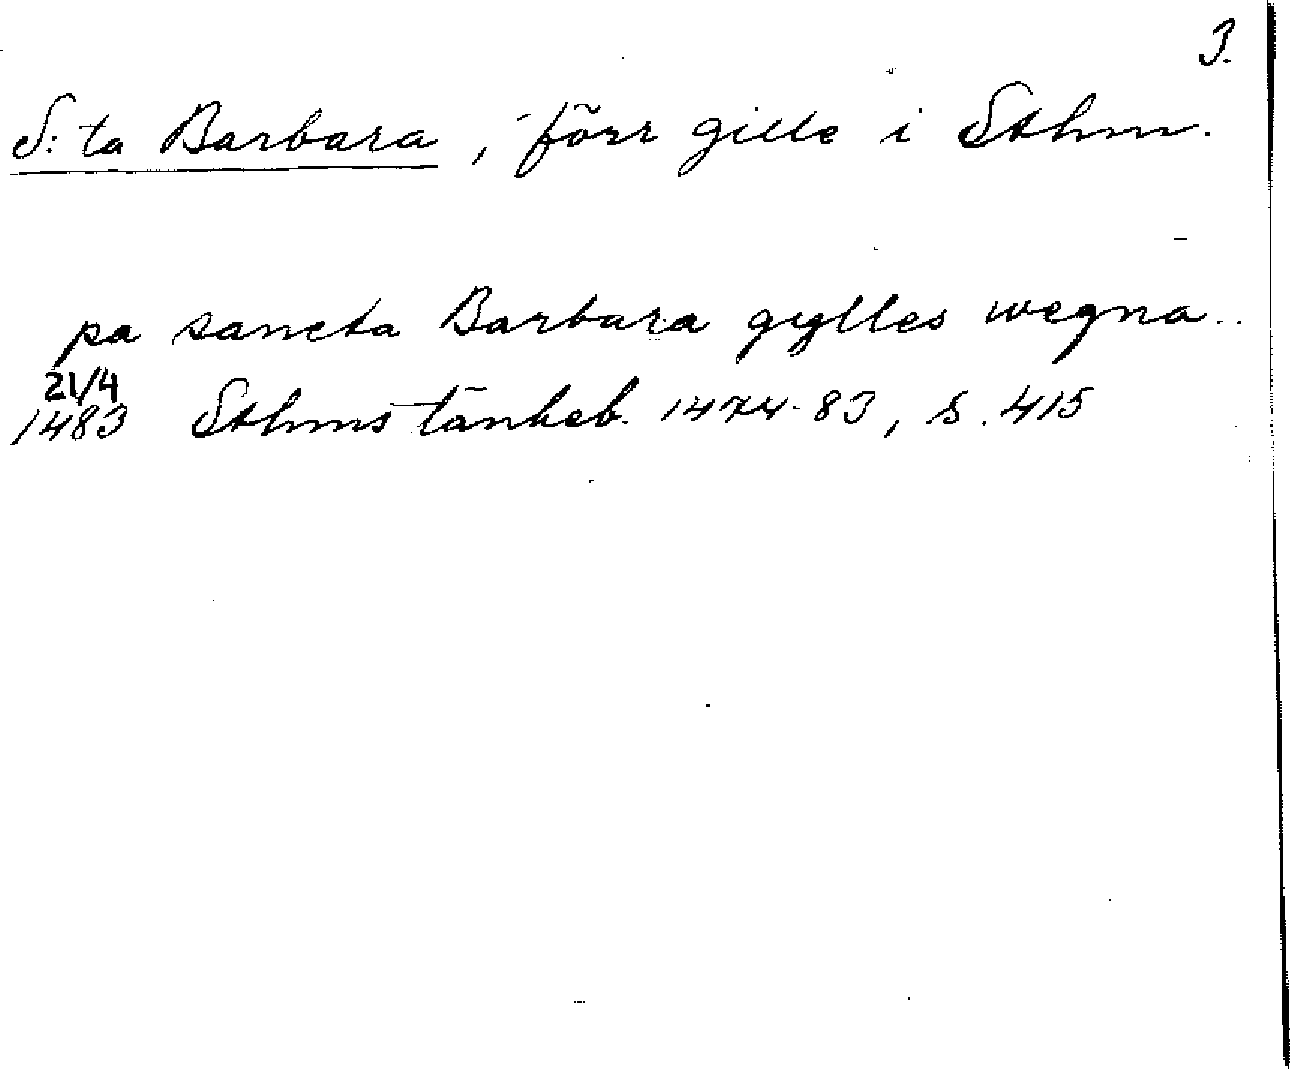 3.
S:ta Barbara, förr gille i Sthm.
pa sancta Barbara gylles wegna..
21/4
1483 Sthms tänkeb. 1474-83, s. 415